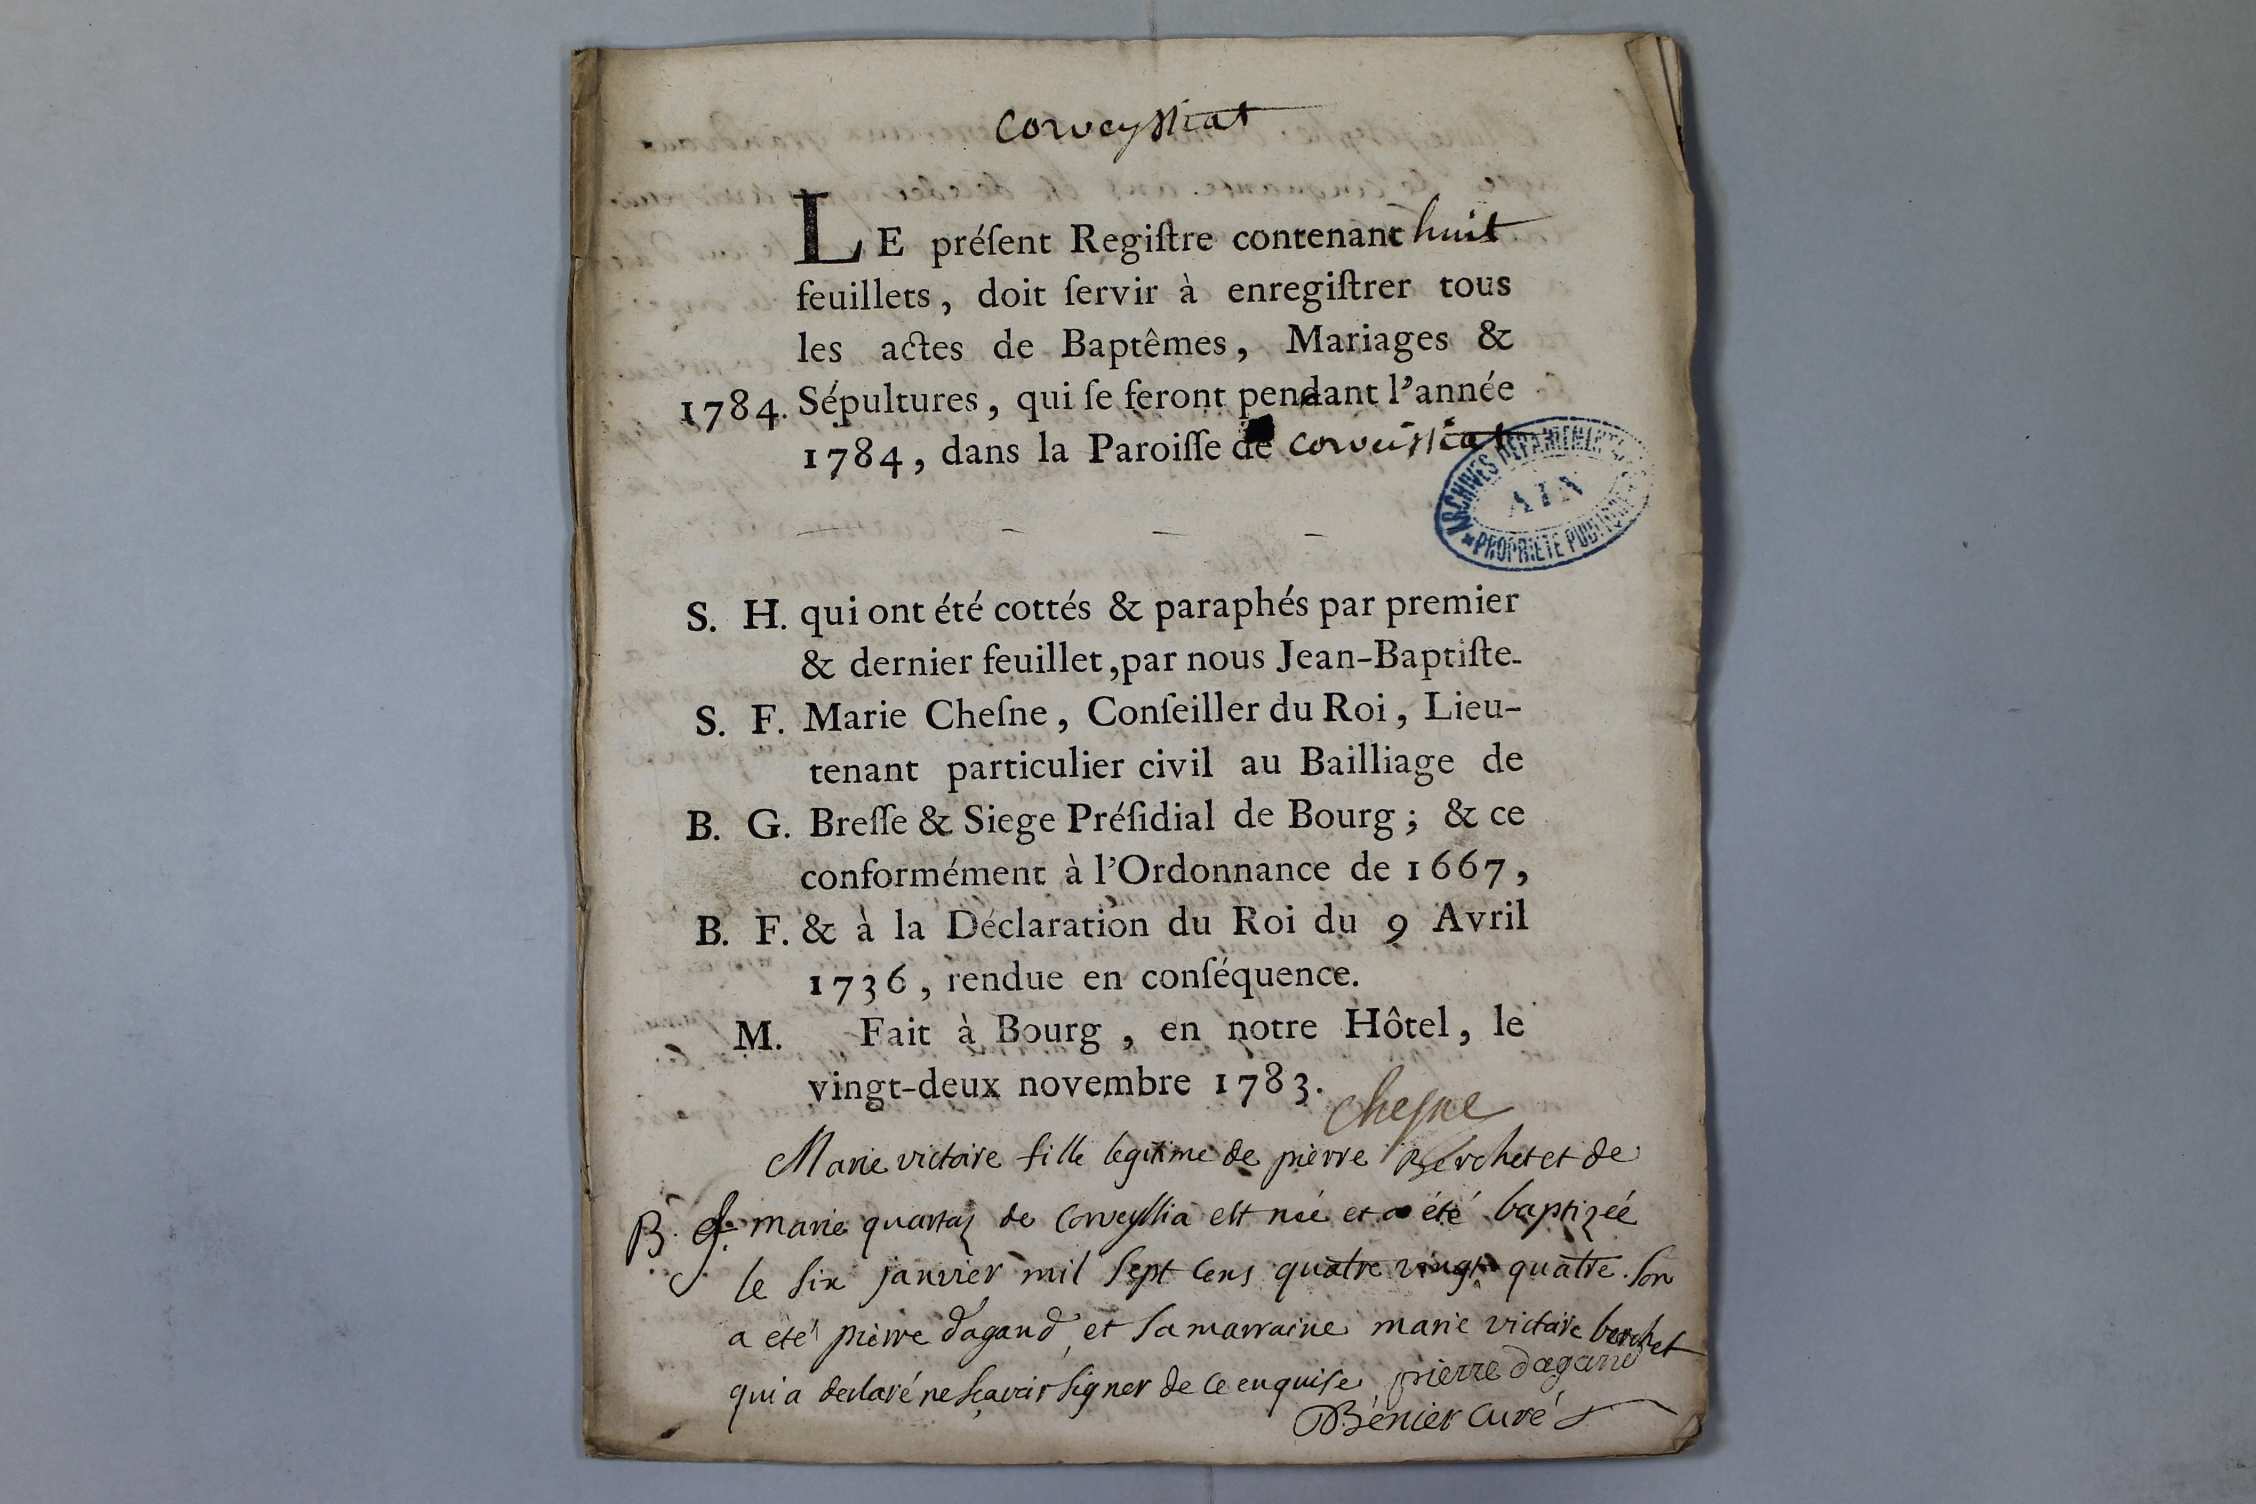 Corveyssiat
LE préſent Regiſtre contenant huit
feuillets, doit ſervir à enregiſtrer tous
les actes de Baptêmes, Mariages &
1784. Sépultures, qui ſe feront pendant l'année
1784, dans la Paroiſſe de Corveissiat
ARCHIVES DEPARTEMENTALES
AIN
PROPRIETE PUBLIQUE
S. H. qui ont été cottés & paraphés par premier
& dernier feuillet, par nous Jean-Baptiſte-
S. F. Marie Cheſne, Conſeiller du Roi, Lieu-
tenant particulier civil au Bailliage de
B. G. Breſſe & Siege Préſidial de Bourg; & ce
conformément à l'Ordonnance de 1667,
B. F. & à la Déclaration du Roi du 9 Avril
1736, rendue en conſéquence.
M. Fait à Bourg, en notre Hôtel, le
vingt-deux novembre 1783.
Chesne
Marie victoire fille legitime de pierre Berchet et de
B. f. marie quartaz de Corveyssia est née et a été baptizée
le six janvier mil sept cens quatre vingt quatre. son
a été pierre dagand, et sa marraine marie victoire berchet
qui a declaré ne sçavoir signer de ce enquise pierre dagand
Bénier Curé